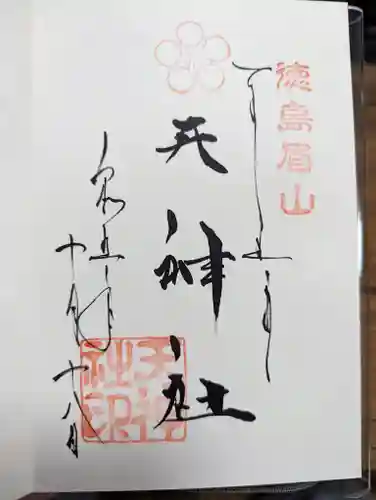 徳島眉山
奉拝
天神社
天神社印
令和五年
十月十八日